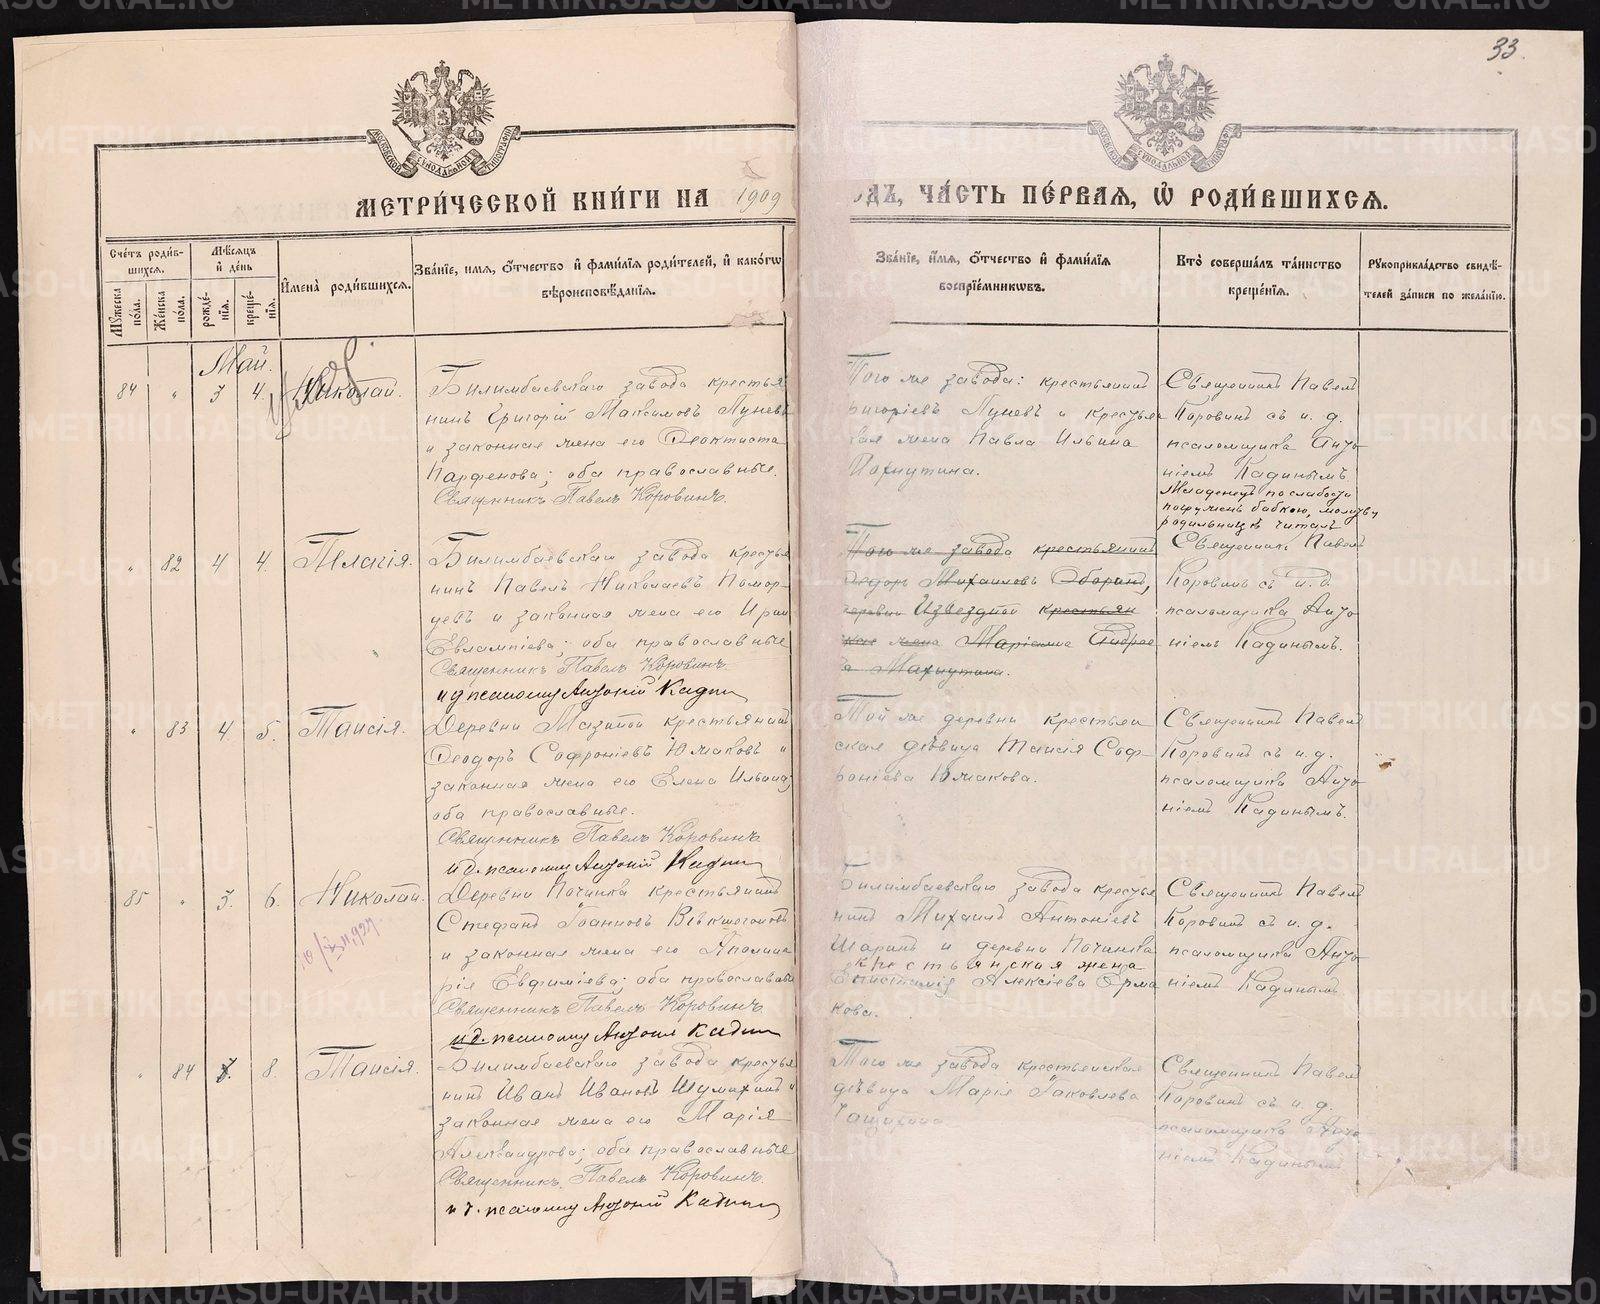 33.
МОСКОВСКОЙ СѴНОДАЛЬНОЙ ТИПОГРАФІИ
МОСКОВСКОЙ СѴНОДАЛЬНОЙ ТИПОГРАФІИ
МЕТРИ́ЧЕСКОЙ КНИ́ГИ НА 1909
ДЪ, ЧА́СТЬ ПЕ́РВАЯ, Ѽ РОДИ́ВШИХСѦ.
Сче́тъ роди́в-
шихсѧ.
Мѣ́сѧцъ
и҆ де́нь
Мꙋжеска по́ла.
Же́нска по́ла.
рожде́-
нїѧ.
креще́-
нїѧ.
И҆мена̀ роди́вшихсѧ.
Зва́нїе, и҆мѧ, ѻ҆́тчество и҆ фами́лїѧ роди́телей, и҆ како́гѡ
вѣроисповѣ́данїѧ.
Зва́нїе, и҆́мѧ, ѻ҆́тчество и҆ фами́лїѧ
воспрїе́мникѡвъ.
Кто̀ соверша́лъ та́инство
креще́нїѧ.
Рꙋкоприкла́дство свидѣ́-
телей за́писи по жела́нїю.
Май.
84 " 3 4. Николай.
Билимбаевскаго завода крестья
нинъ Григорій Максимовъ Пуневъ
и законная жена его Феоктиста
Парфенова; оба православные.
Священникъ Павелъ Коровинъ.
Того же завода: крестьянинъ
ригоріевъ Пуневъ и крестья
кая жена Павла Ильина
Пахнутина.
Священникъ Павелъ
Коровинъ съ и. д.
псаломщика Анто
ніемъ Кадинымъ
Младенецъ по слабости
погруженъ бабкою, молитву
родильницѣ читалъ
" 82 4 4. Пелагія.
Билимбаевскаго завода крестья
нинъ Павелъ Николаевъ Помор-
цевъ и законная жена его Ирин
Евлампіева; оба православные
Священникъ Павелъ Коровинъ
и д псаломщ Антоній Кадин
Того же завода крестьянинъ
Феодоръ Михаиловъ Оборинъ,
деревни Извездной крестьян
ская жена Маріамна Андрее
а Махнутина.
Священникъ Павелъ
Коровинъ съ и. д.
псаломщика Анто
ніемъ Кадинымъ.
" 83 4 5. Таисія.
Деревни Мазиной крестьянинъ
Феодоръ Софроніевъ Юмаковъ и
законная жена его Елена Ильина;
оба православные.
Священникъ Павелъ Коровинъ
и д. псаломщ Антоній Кадин
Той же деревни крестьян
ская дѣвица Таисія Соф-
роніева Юмакова.
Священникъ Павелъ
Коровинъ съ и. д.
псаломщика Анто
ніемъ Кадинымъ.
85 " 3. 6. Николай.
Деревни Починка крестьянинъ
Стефанъ Іоанновъ
и законная жена его Аполина
рія Евфиміева; оба православные
Священникъ Павелъ Коровинъ
и д. псаломщ Антоній Кадин
Билимбаевскаго завода крестья
нинъ Михаилъ Антоніевъ
Шаринъ и деревни Починка
крестьянская жена
Епистимія Алексіева Ерма
кова.
Священникъ Павелъ
Коровинъ съ и. д.
псаломщика Анто
ніемъ Кадинымъ
" 84 8. Таисія.
Билимбаевскаго завода крестья
нинъ Иванъ Ивановъ Шумихинъ и
законная жена его Марія
Александрова; оба православные
Священникъ Павелъ Коровинъ.
и д. псаломщ Антоній Кадин
Того же завода крестьянская
дѣвица Марія Іаковлева
Чащихина
Священникъ Павелъ
Коровинъ съ и. д.
псаломщика Анто
ніемъ Кадинымъ
METRIKI.GASO-URAL.RU